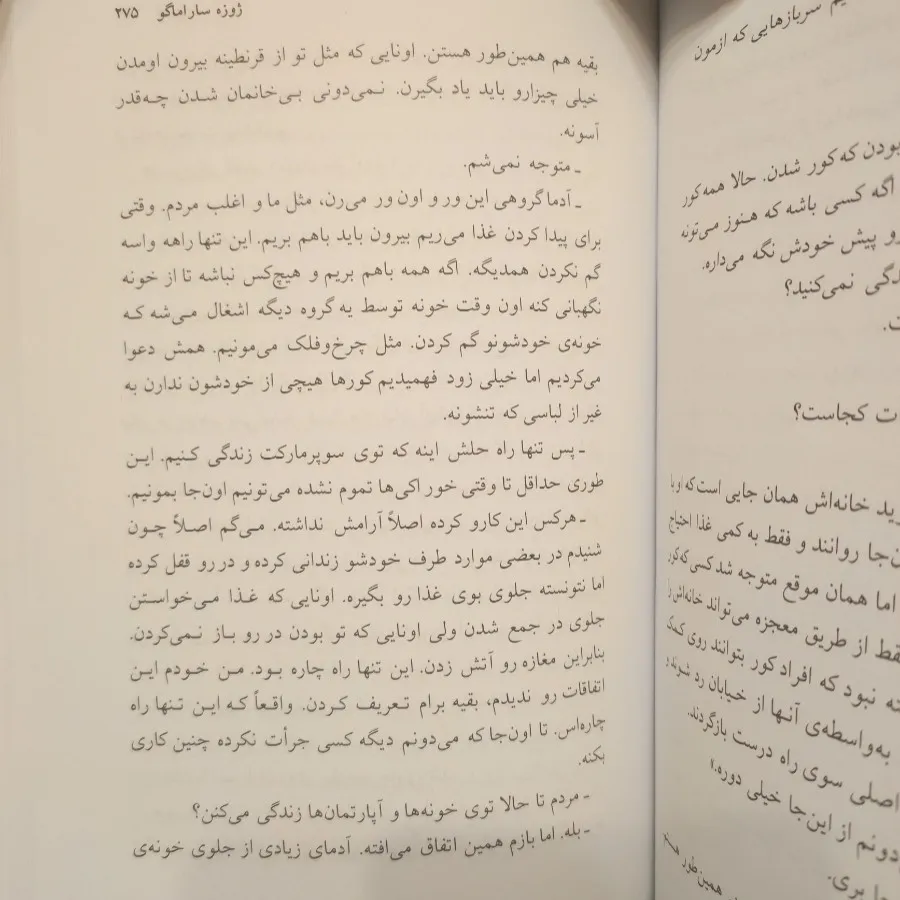 ژوزه ساراماگو ۲۷۵
بقیه هم همین‌طور هستن. اونایی که مثل تو از قرنطینه بیرون اومدن
خیلی چیزارو باید یاد بگیرن. نمی‌دونی بی‌خانمان شدن چه‌قدر
آسونه.
ـ متوجه نمی‌شم.
ـ آدما گروهی این ور و اون ور می‌رن، مثل ما و اغلب مردم. وقتی
برای پیدا کردن غذا می‌ریم بیرون باید باهم بریم. این تنها راهه واسه
گم نکردن همدیگه. اگه همه باهم بریم و هیچ‌کس نباشه تا از خونه
نگهبانی کنه اون وقت خونه توسط یه گروه دیگه اشغال می‌شه که
خونه‌ی خودشونو گم کردن. مثل چرخ‌وفلک می‌مونیم. همش دعوا
می‌کردیم اما خیلی زود فهمیدیم کورها هیچی از خودشون ندارن به
غیر از لباسی که تنشونه.
ـ پس تنها راه حلش اینه که توی سوپرمارکت زندگی کنیم. این
طوری حداقل تا وقتی خور اکی‌ها تموم نشده می‌تونیم اون‌جا بمونیم.
ـ هرکس این کارو کرده اصلاً آرامش نداشته. می‌گم اصلاً چون
شنیدم در بعضی موارد طرف خودشو زندانی کرده و در رو قفل کرده
اما نتونسته جلوی بوی غذا رو بگیره. اونایی که غذا می‌خواستن
جلوی در جمع شدن ولی اونایی که تو بودن در رو باز نمی‌کردن.
بنابراین مغازه رو آتش زدن. این تنها راه چاره بود. من خودم این
اتفاقات رو ندیدم، بقیه برام تعریف کردن. واقعاً که این تنها راه
چاره‌اس. تا اون‌جا که می‌دونم دیگه کسی جرأت نکرده چنین کاری
بکنه.
ـ مردم تا حالا توی خونه‌ها و آپارتمان‌ها زندگی می‌کنن؟
ـ بله. اما بازم همین اتفاق می‌افته. آدمای زیادی از جلوی خونه‌ی
سربازهایی که ازمون
بودن که کور شدن. حالا همه کور
اگه کسی باشه که هنوز می‌تونه
رو پیش خودش نگه می‌داره.
نمی‌کنید؟
کجاست؟
خانه‌اش همان جایی است که او با
روانند و فقط به کمی غذا احتیاج
اما همان موقع متوجه شد کسی که کور
از طریق معجزه می‌تواند خانه‌اش را
نبود که افراد کور بتوانند روی کمک
به‌واسطه‌ی آنها از خیابان رد شوند و
اصلی سوی راه درست بازگردند.
از این‌جا خیلی دوره.»
بری.
همین‌طور